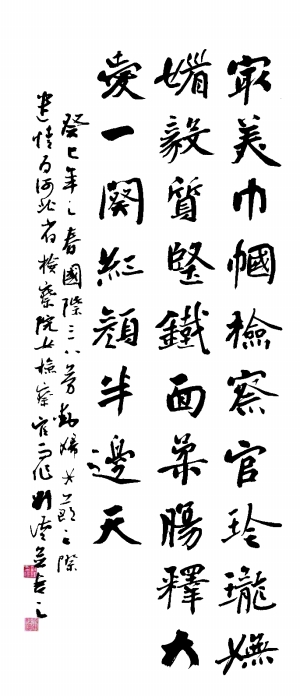 最美巾幗檢察官玲瓏嫵
媚毅質堅鐵面柔腸釋大
愛一闋紅顏半邊天
癸巳年之春國際三八勞動婦女節之際
遣情為河北省檢察院女檢察官而作